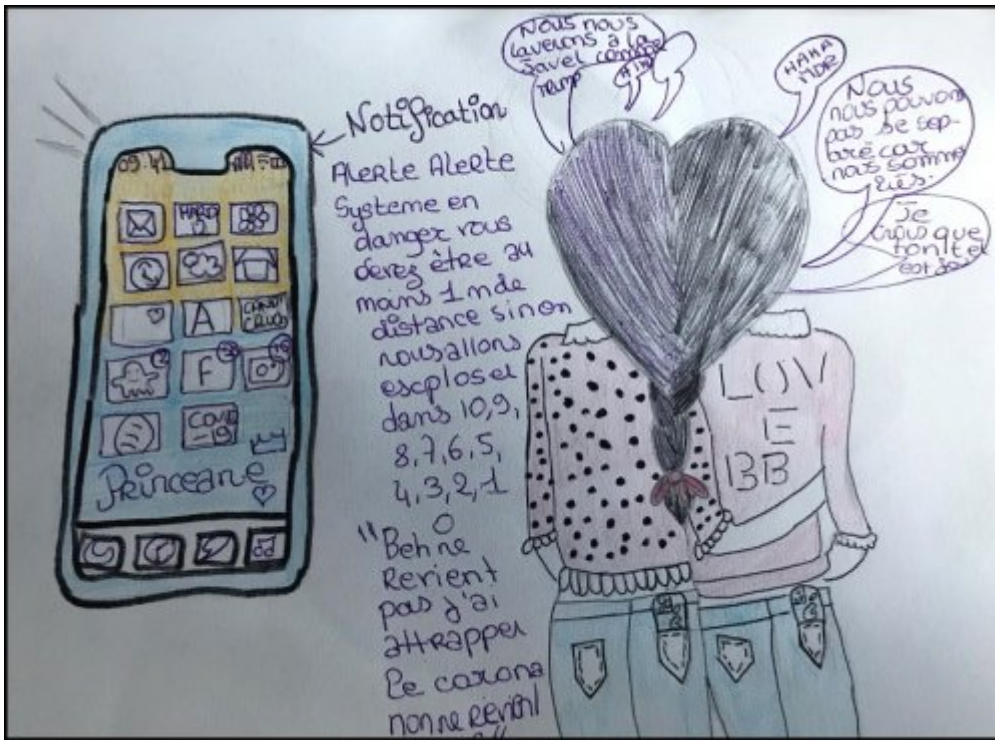 09:41
HARD
A
CAND
CRUSH
F
COVID
-19
Princeane
Notification
Alerte Alerte
Systeme en
danger vous
devez être au
moins 1m de
distance sinon
nous allons
esxploser
dans 10,9,
8,7,6,5,
4,3,2,1
0
"Beh ne
Revient
pas j'ai
attrapper
le carona
non ne Revient
Nous nous
laverons a la
Javel comme
TRUMP
HAHA
MDR
Nous
nous pouvons
pas se sep-
aré car
nous somme
liés.
Je
crois que
LOV
E
BB